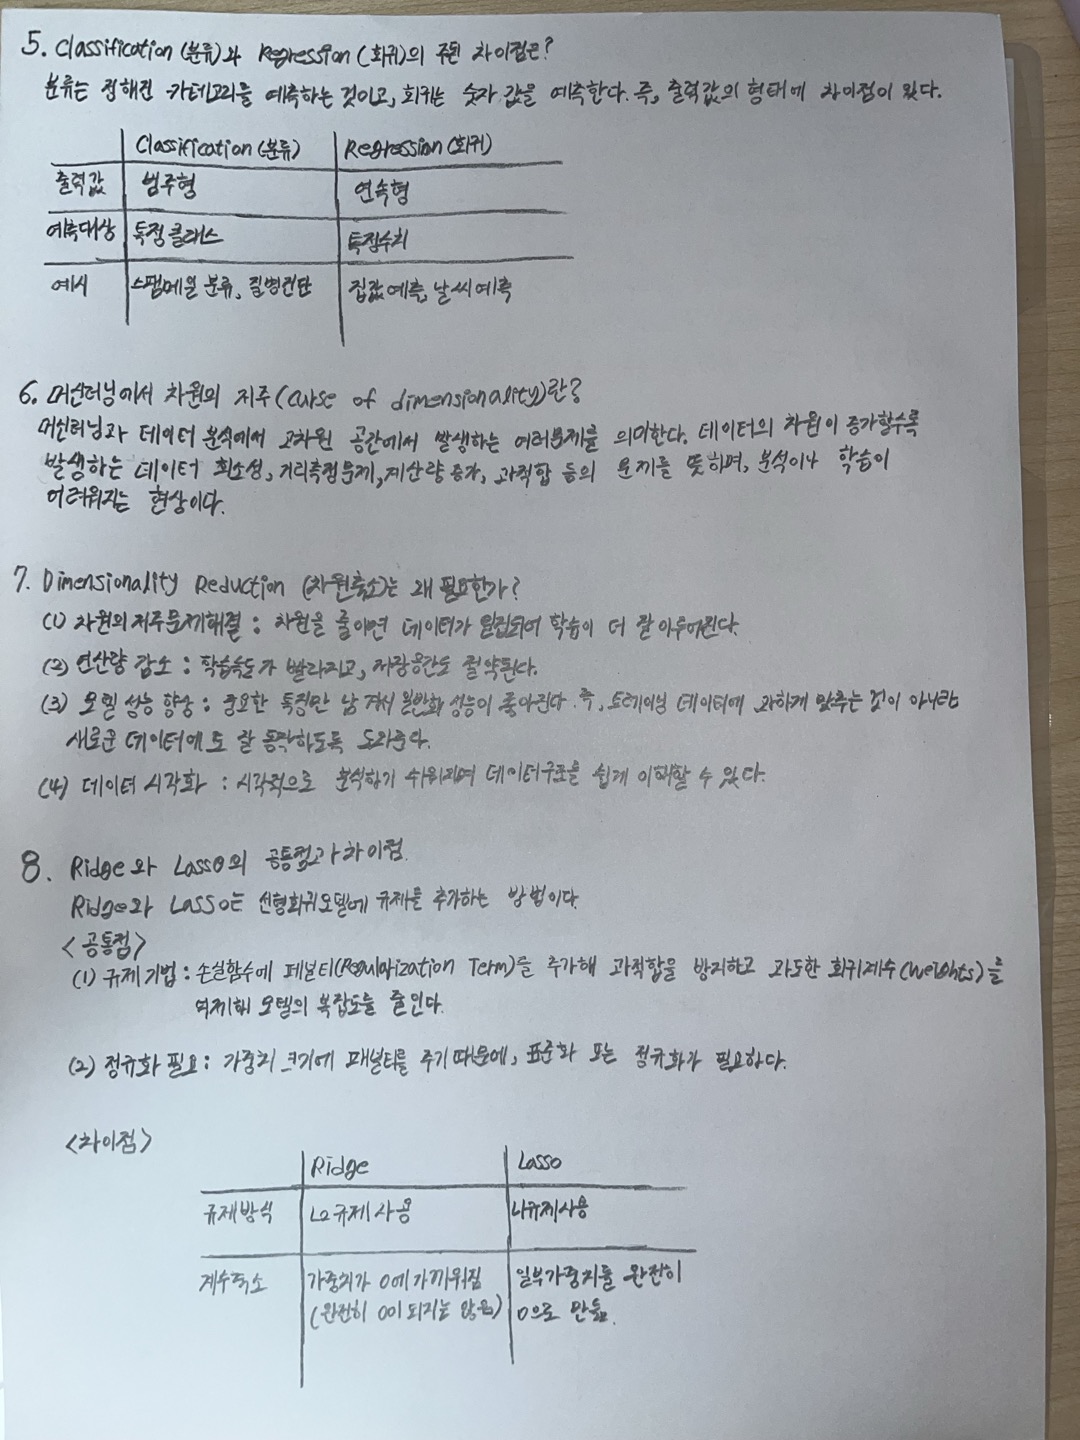 5. Classification (분류)와 Regression (회귀)의 주된 차이점은?
분류는 정해진 카테고리를 예측하는 것이고, 회귀는 숫자 값을 예측한다. 즉, 출력값의 형태에 차이점이 있다.
Classification (분류) Regression (회귀)
출력값 범주형 연속형
예측대상 특정 클래스 특정수치
예시 스팸메일 분류, 질병진단 집값 예측, 날씨 예측
6. 머신러닝에서 차원의 저주 (Curse of dimensionality)란?
머신러닝과 데이터 분석에서 고차원 공간에서 발생하는 여러문제를 의미한다. 데이터의 차원이 증가할수록
발생하는 데이터 희소성, 거리측정문제, 계산량 증가, 과적합 등의 문제를 뜻하며, 분석이나 학습이
어려워지는 현상이다.
7. Dimensionality Reduction (차원축소)는 왜 필요한가?
(1) 차원의 저주문제해결 : 차원을 줄이면 데이터가 밀집되어 학습이 더 잘 이루어진다.
(2) 연산량 감소 : 학습속도가 빨라지고, 저장공간도 절약된다.
(3) 모델 성능 향상 : 중요한 특징만 남겨서 일반화 성능이 좋아진다. 즉, 트레이닝 데이터에 과하게 맞추는 것이 아니라
새로운 데이터에도 잘 동작하도록 도와준다.
(4) 데이터 시각화 : 시각적으로 분석하기 쉬워지며 데이터구조를 쉽게 이해할 수 있다.
8. Ridge와 Lasso의 공통점과 차이점.
Ridge와 Lasso는 선형회귀모델에 규제를 추가하는 방법이다.
<공통점>
(1) 규제 기법 : 손실함수에 페널티(Regularization Term)를 추가해 과적합을 방지하고 과도한 회귀계수(weights)를
억제해 모델의 복잡도를 줄인다.
(2) 정규화 필요 : 가중치 크기에 패널티를 주기 때문에, 표준화 또는 정규화가 필요하다.
<차이점>
Ridge Lasso
규제방식 L2 규제 사용 L1규제사용
계수축소 가중치가 0에 가까워짐 일부가중치를 완전히
(완전히 0이 되지는 않음) 0으로 만듦.